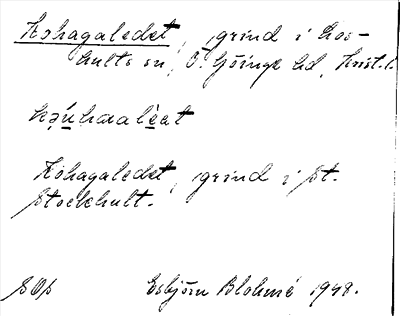 Kohagaledet, grind i Gos-
hults sn, Ö. Göinge hd, Krist. l.
Kohagaledet, grind i St.
Stockhult.
Esbjörn Blohmé 1948.